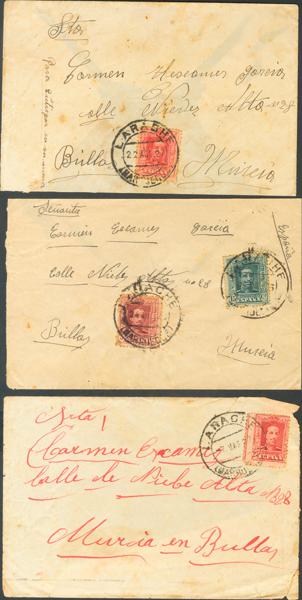 Srta
Carmen Escames Garcia
calle Nieves Alta n 28
Bullas Murcia
LARACHE
(MARRUECOS)
Señorita
Carmen Escames Garcia
Calle Niebe Alta no 28
España
Bullas
Murcia
LARACHE
(MARRUECOS)
LARACHE
(MARRUECOS)
ESPAÑA
Srta
Carmen Escame
Calle de Niebe Alta N 28
Murcia en Bullas
LARACHE
(MARRUECOS)
ESPAÑA